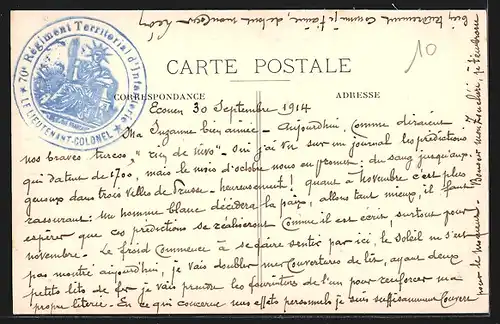 70e Régiment Territorial d'Infanterie
LE LIEUTENANT-COLONEL
10
CARTE POSTALE
CORRESPONDANCE
ADRESSE
Ecouen 30 Septembre 1914
Ma Suzanne bien aimée - Aujourdhui, comme disaient
nos braves turcos, "rien de nuvo". oui j'ai vu sur un journal les prédictions
qui datent de 1700, mais le mois d'octobre nous en promet: du sang jusqu'aux
genoux dans trois villes de Prusse - heureusement! quant à novembre c'est plus
rassurant: un homme blanc décidera la paix, allons tant mieux, il faut
espérer que ces prédictions se réaliseront comme il est écrit surtout pour
novembre. Le froid commence à se faire sentir par ici, le soleil ne s'est
pas montré aujourdhui, je vais doubler mes couvertures de lit, ayant deux
petits lits de fer je vais prendre les fournitures de l'un pour renforcer ma
propre literie. En ce qui concerne mes effets personnels je suis suffisamment couvert
pour le moment. Bonsoir mon
bien tendrement comme je t'aime,